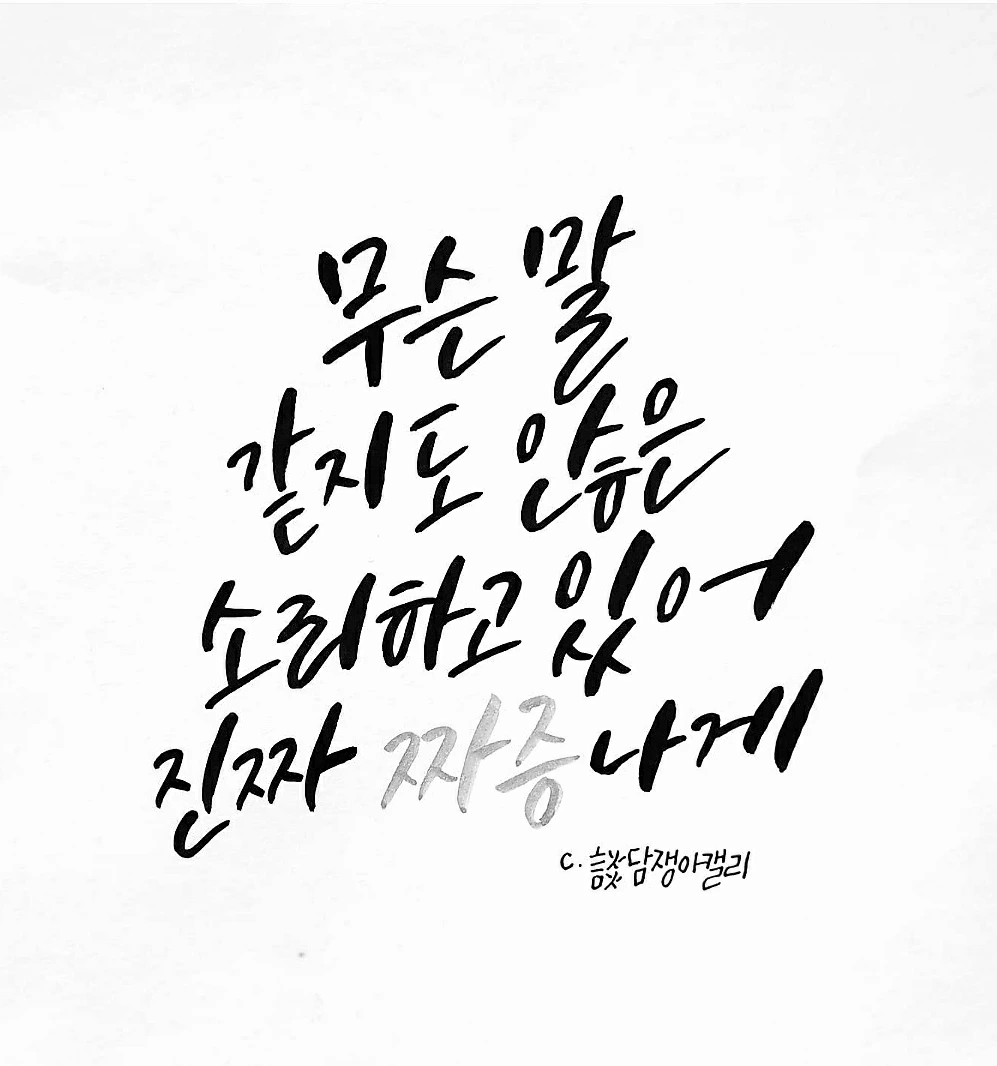 무슨 말
같지도 않은
소리하고 있어
진짜 짜증나게
c. 談담쟁아캘리